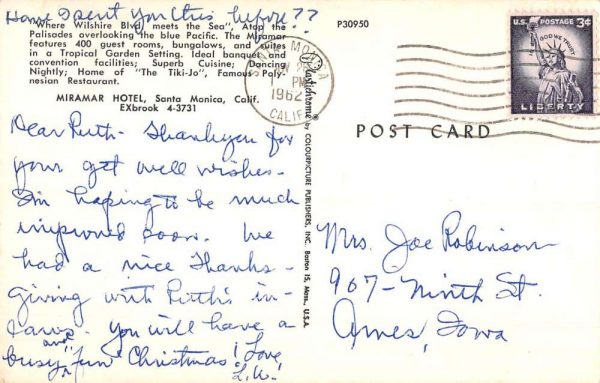 Have I sent you this before??
"Where Wilshire Blvd. meets the Sea", Atop the
Palisades overlooking the blue Pacific. The Miramar
features 400 guest rooms, bungalows, and suites
in a Tropical Garden Setting. Ideal banquet and
convention facilities; Superb Cuisine; Dancing
Nightly; Home of "The Tiki-Jo", Famous Poly-
nesian Restaurant.
MIRAMAR HOTEL, Santa Monica, Calif.
EXbrook 4-3731
Dear Ruth - Thankyou for
your get well wishes.
I'm hoping to be much
improved soon. We
had a nice Thanks-
giving with Ruth's in-
laws. You will have a
busy and "fun" Christmas! Love,
L.W.
Plastichrome ® by COLOURPICTURE PUBLISHERS, INC. Boston 15, Mass., U.S.A.
P30950
SANTA MONICA
PM
1962
CALIF.
U.S. POSTAGE 3¢
IN GOD WE TRUST
LIBERTY
POST CARD
Mrs. Joe Robinson
907 - Ninth St.
Ames, Iowa